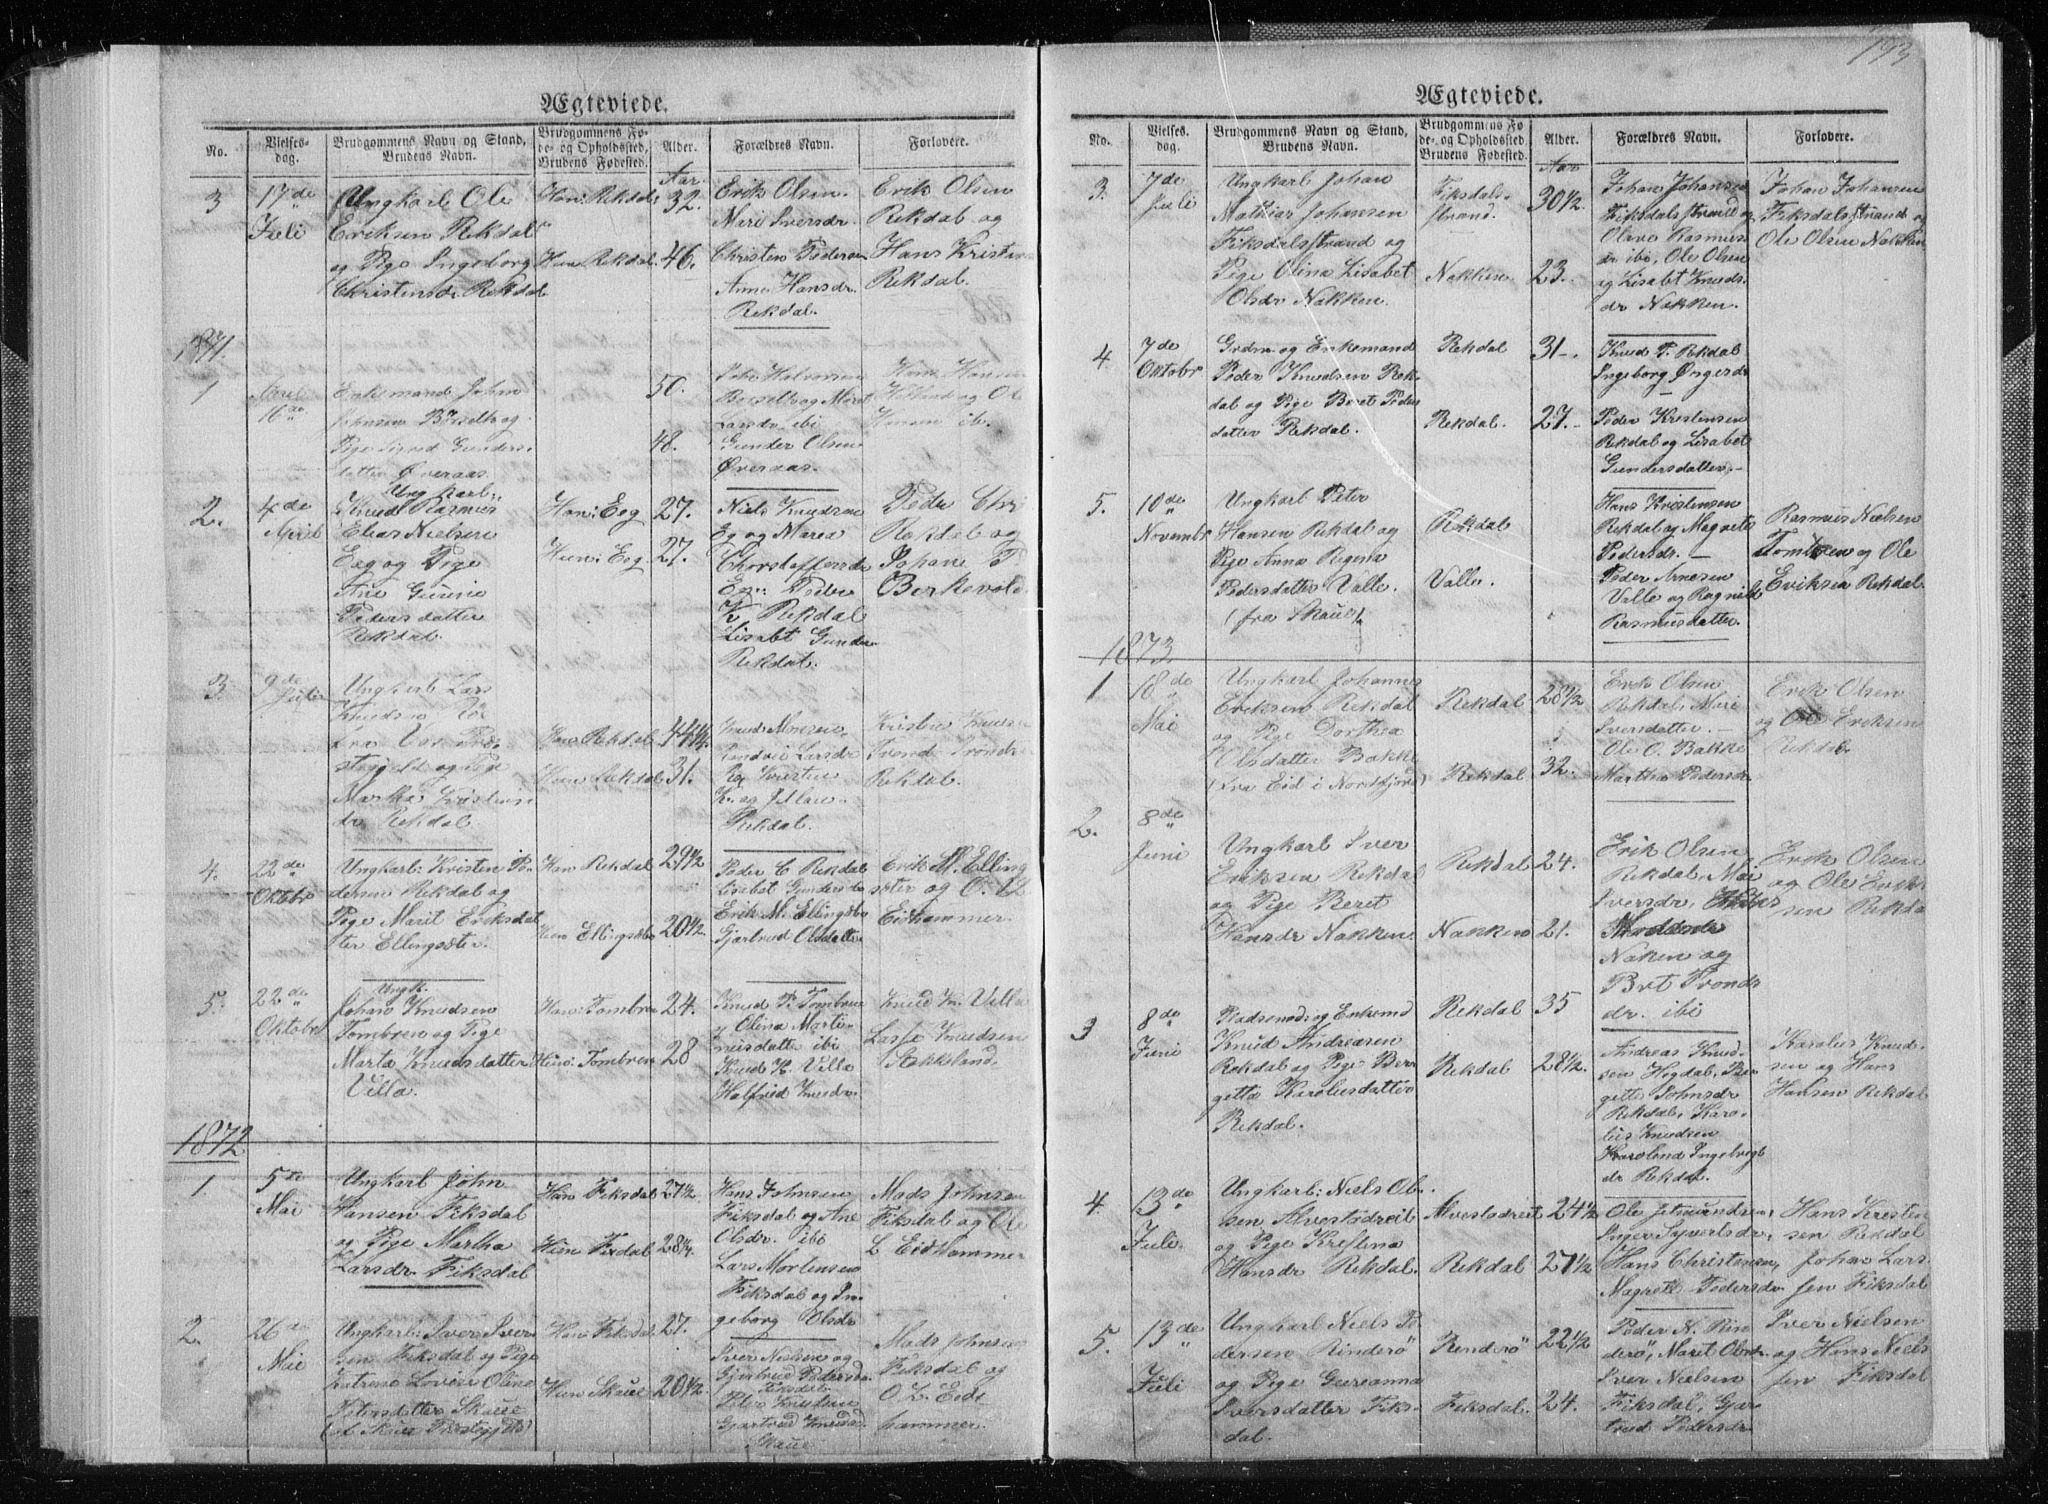 Ægteviede.
No.
Vielses-
dag.
Brudgommens Navn og Stand,
Brudens Navn.
Brudgommens Fø-
de- og Opholdssted,
Brudens Fødested.
Alder.
Forældres Navn.
Forlovere.
Aar.
3
17de
Juli
Ungkarl Ole
Eriksen Rekdal
og Pige Ingeborg
Christensdr Rekdal
Han: Rekdal
Hun Rekdal
32.
46.
Erik Olsen
Mari Iversdr.
Christen Pedersen
Anne Hansdr.
Rekdal.
Erik Olsen
Rekdal og
Hans Kristen
Rekdal.
1871.
1
April
16de
Enkemand John
Johnsen
Pige Sigrid Gunders-
datter Øveraas.
50.
48.
Larsdr ibi
Gunder Olsen
Øveraas.
Hans Hansen
og Ol
Hansen ibi.
2.
4de
April
Ungkarl:
Knud Rasmus
Elias Nielsen
Eeg og Pige
Ane Gurine
Pedersdatter
Rekdal.
Han: Eeg
Hun: Eeg
27.
27.
Niels Knudsen
Eg og Marea
Eg: Peder
K. Rekdal
Lisabt Gundr
Rekdal.
Peder Chri
Rekdal og
Johan P.
Berkevold
3.
9de
Juli
Ungkarl Lars
Knudsen
fra Vor Præ-
stegjeld og Pige
Martha Kristens
dr Rekdal.
Han Rekdal
Hun Rekdal
44 1/4.
31.
Knud Monsen
Randvei Larsdr
og Kristen
K. og
Rekdal.
Kristen Knudsen
Svend Trondsen
Rekdal.
4.
22de
Oktobr
Ungkarl: Kristen Pe-
dersen Rekdal og
Pige Marit Eriksdat
ter Ellingsæter.
Han Rekdal
Hun Ellingsæter
29 1/2
20 1/2
Peder C Rekdal
Lisabet Gundersdr
Erik M. Ellingsæter
Gjertrud Olsdatter
Erik M. Elling
sæter og O. L
Eidhammer.
5.
22de
Oktobr
Ungk.
Johan Knudsen
Tombren og Pige
Marta Knudsdatter
Villa.
Han: Tombre
Hun: Tombren
24.
28
Knud P. Tombren
og Olina Marti-
neisdatter ibi
Knud K. Villa
Halfrid Knudsdr.
Knud Kn. Villa
Lasse Knudsen
1872
1.
5te
Mai
Ungkarl John
Hansen Fiksdal
og Pige Martha
Larsdr. Fiksdal
Han Fiksdal
Hun Fixdal
27 1/2.
28 1/4.
Hans Johnsen
Fiksdal og Ane
Olsdr. ibi
Lars Mortensen
Fiksdal og In-
geborg Olsdr
Mads Johnsen
Fiksdal og Ole
L Eidhammer
2.
26de
Mai
Ungkarl: Iver Iver-
sen Fiksdal og Pige
Katrine Lovise Oline
Petersdatter Skaue
(af Skue Præstegjeld)
Han Fiksdal
Hun Skaue
27.
20 1/2.
Iver Nielsen og
Gjertrud Pedersdr
Fiksdal
Peter Knudsen
Gjartrud Knudsdr
Skaue
Mads Johnsen
Fiksdal og
O L. Eid-
hammer.
193
Ægteviede.
No.
Vielses-
dag.
Brudgommens Navn og Stand,
Brudens Navn.
Brudgommens Fø
de- og Opholdssted,
Brudens Fødested.
Alder.
Forældres Navn.
Forlovere.
Aar
3.
7de
Juli
Ungkarl Johan
Mathias Johansen
Fiksdalsstrand og
Pige Olina Lisabet
Olsdr Nakken.
Fiksdals-
strand.
Nakken.
30 1/2.
23.
Johan Johansen
Fiksdalsstrand og
Olave Rasmus
dr ibi, Ole Olsen
og Lisabt Knuds-
dr Nakken.
Johan Johansen
Fiksdalsstrand og
Ole Olsen Nakken
4.
7de
Oktobr
Grdm. og Enkemand
Peder Knudsen Rek-
dal og Pige Beret Peders
datter Rekdal.
Rekdal
Rekdal.
31.
27.
Knud P. Rekdal
Ingeborg
Peder Kristensen
Rekdal og Lisabet
Gundersdatter.
5.
10de
Novembr
Ungkarl Peter
Hansen Rekdal og
Pige Anna Regina
Pedersdatter Valle.
(fra Skaue)
Rekdal
Valle.
Hans Kristensen
Rekdal og Magrete
Pedersdr.
Peder Arnesen
Valle og Ragnild
Rasmusdatter.
Rasmus Nielsen
Tombren og Ole
Eriksen Rekdal.
1873
1
18de
Mai
Ungkarl Johannes
Eriksen Rekdal
og Pige Dorthea
Olsdatter Bakke
(fra Eid i Nordfjord)
Rekdal
Rekdal
28 1/2
32.
Erik Olsen
Rekdal, Mari
Iversdatter.
Ole O. Bakke
Martha Pedersdr.
Erik Olsen
og Ole Eriksen
Rekdal.
2.
8de
Juni
Ungkarl Iver
Eriksen Rekdal
og Pige Beret
Hansdr Nakken.
Rekdal
Nakken
24.
21.
Erik Olsen
Rekdal, Mari
Iversdr,
Naken og
Brt Tronds
dr. ibi
Erik Olsen
og Ole Erik-
sen Rekdal
3
8de
Juni
Pladsmd: og Enkemd
Knud Andreasen
Rekdal og Pige Ber
getta Karolusdatter
Rekdal.
Rekdal
Rekdal
35
28 1/2.
Andreas Knud-
sen Hogdal, Ber
gitte Johnsdr
Rekdal, Karo-
lus Knudsen
Karolena Ingebrigt
dr Rekdal.
Karolus Knud-
sen og Hans
Hansen Rekdal
4.
13de
Juli.
Ungkarl: Niels Ol-
sen Alvestadreit
og Pige Krestena
Hansdr Rekdal.
Alvestadreit
Rekdal
24 1/2
27 1/2
Ole
Inger Syvertsdr.
Hans Christensen,
Magrete Pedersdr
Hans Kresten-
sen Rekdal
Johan Lars-
sen Fiksdal
5.
13de
Juli
Ungkarl Niels P.
dersen Rinderø
og Pige Gureanna
Iversdatter Fiks-
dal.
Renderø
Feksdal.
22 1/2
24.
Peder N. Rin
derø, Marit Olsdr.
Iver Nielsen
Fiksdal, Gjer-
trud Pedersdr
Iver Nielsen
og Hans Niels
sen Fiksdal